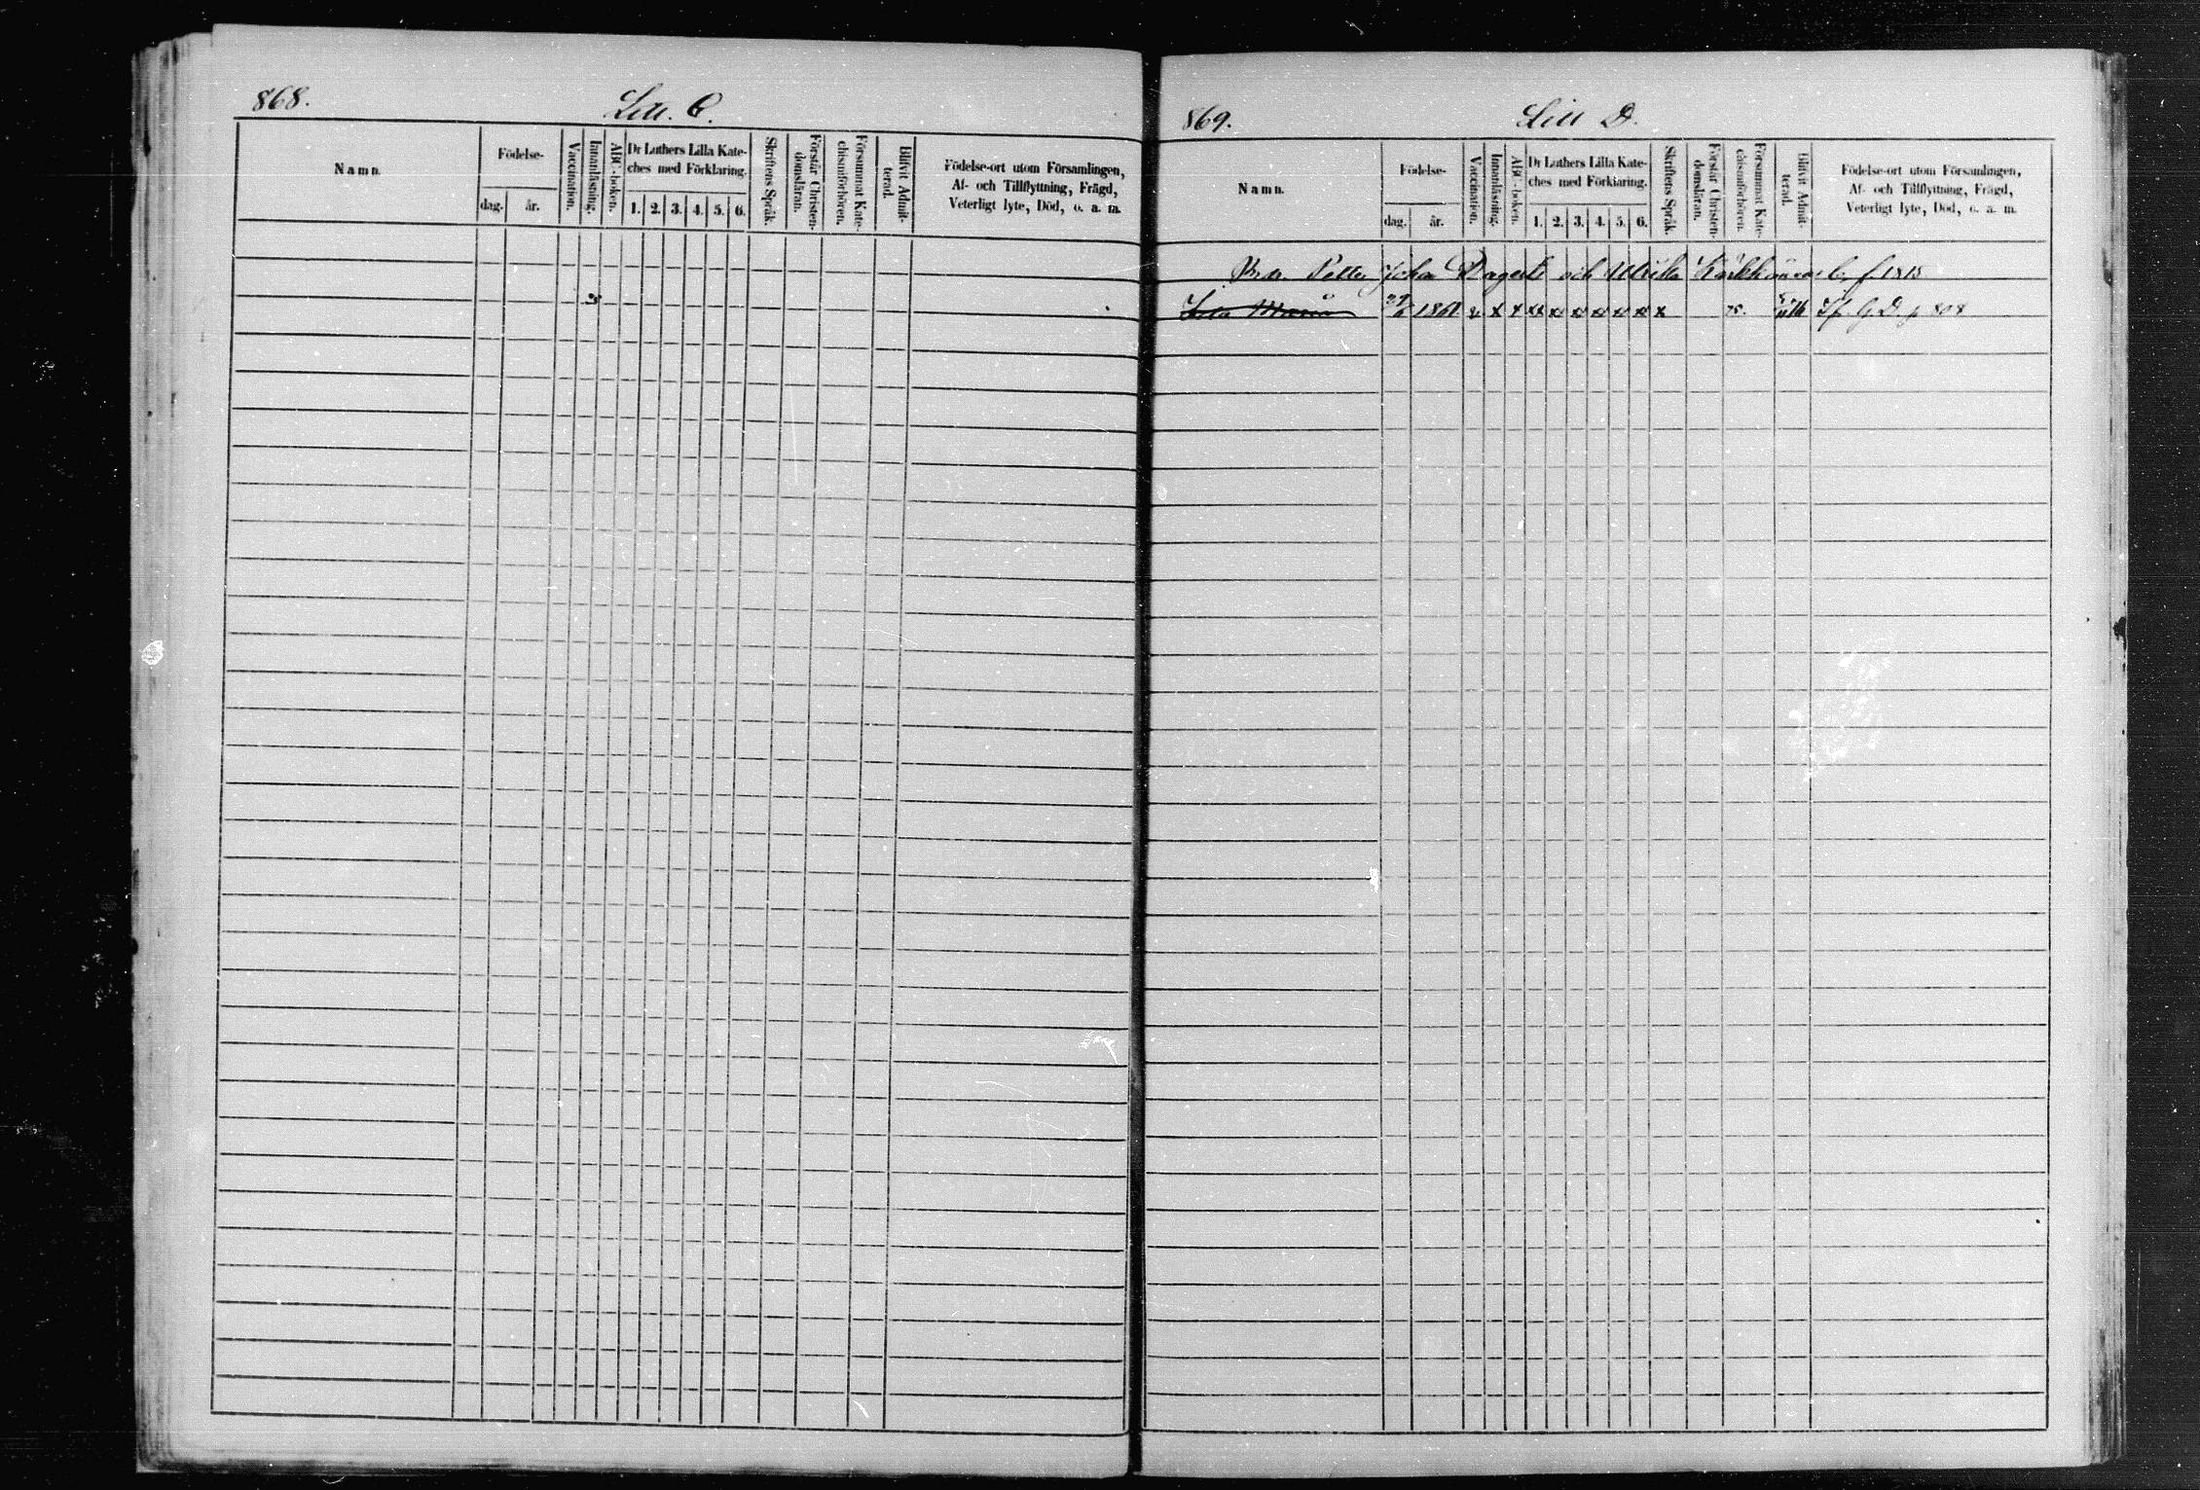 868.
Litt. C.
Namn.
Födelse-
dag.
år.
Vaccination.
Innanläsning.
ABC-boken.
Dr Luthers Lilla Kate-
ches med Förklaring.
1. 2. 3. 4. 5. 6.
Skriftens Språk.
Förstår Christen-
domsläran.
Försummat Kate-
chismiförhören.
Blifvit Admit-
terad.
Födelse-ort utom Församlingen,
Af- och Tillflyttning, Frägd,
Veterligt lyte, Död, o. a. m.
869.
Litt D.
Namn.
Födelse-
dag.
år.
Vaccination.
Innanläsning.
ABC-boken.
Dr Luthers Lilla Kate-
ches med Förklaring.
1. 2. 3. 4. 5. 6.
Skriftens Språk.
Förstår Christen-
domsläran.
Försummat Kate-
chismiförhören.
Blifvit Admit-
terad.
Födelse-ort utom Församlingen,
Af- och Tillflyttning, Frägd,
Veterligt lyte, Död, o. a. m.
Johan och Ulrika f. 1818
Maria 1861 x x x x x x x x 75. G. D. p 808